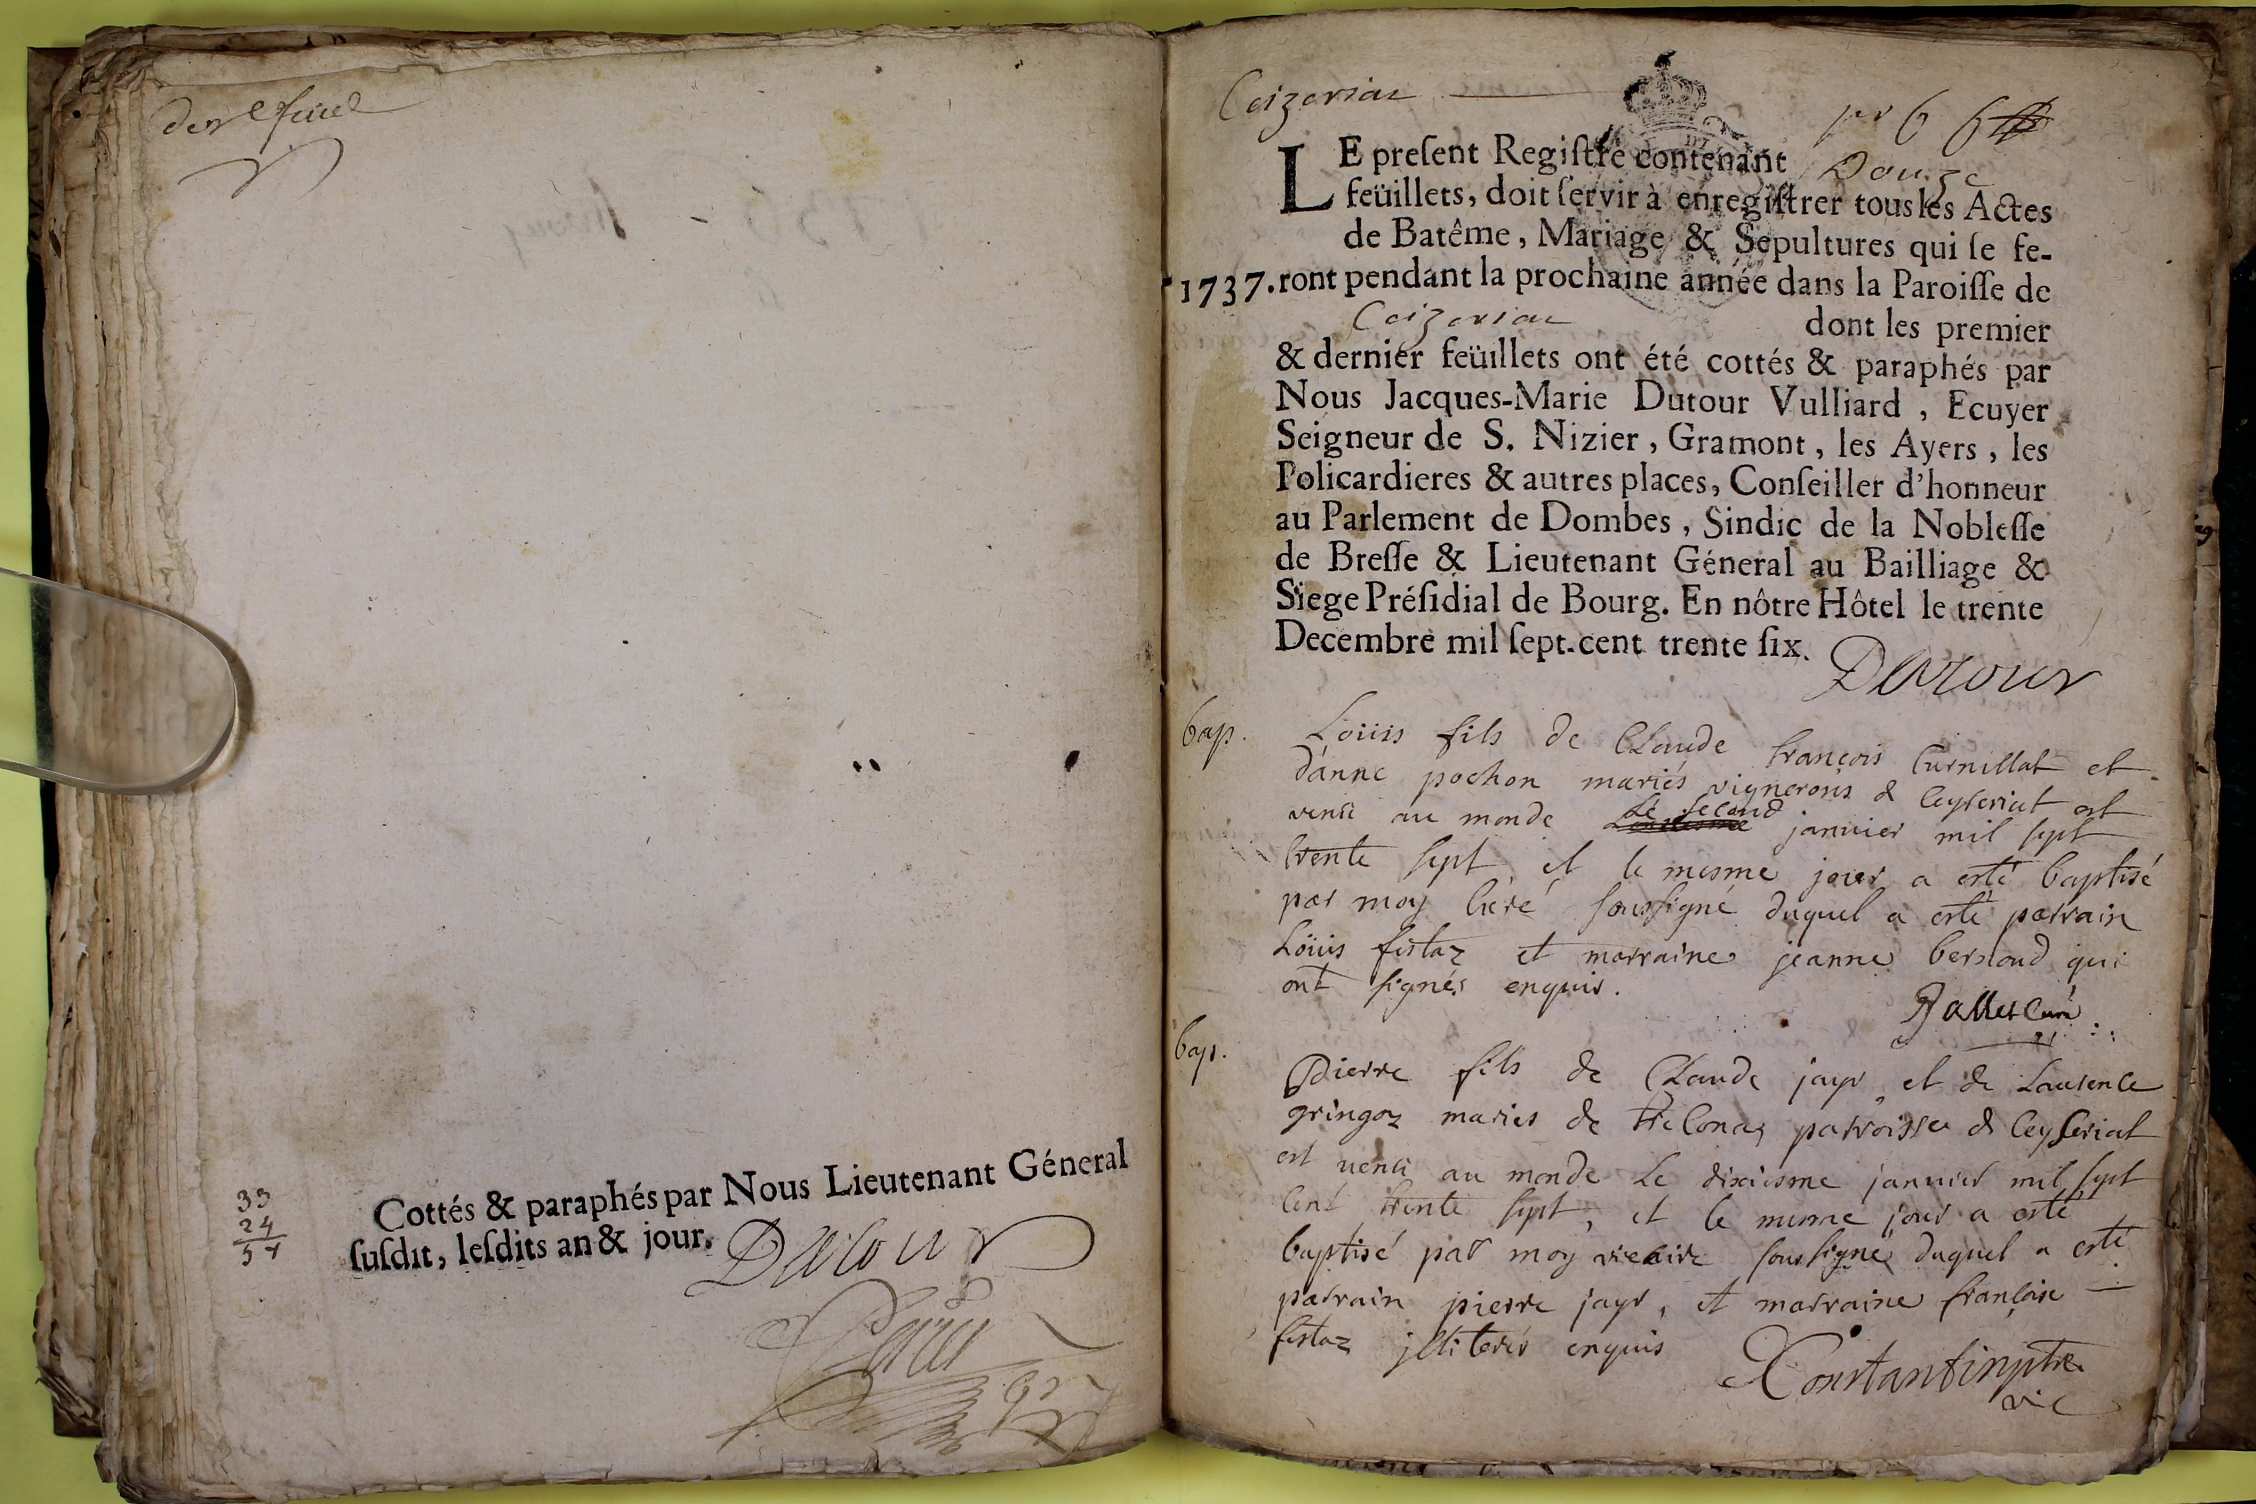 Cottés & paraphés par Nous Lieutenant Géneral
ſuſdit, leſdits an & jour.
Dutour
33
24
57
Ceizeriat
Douze
LE preſent Regiſtre contenant
feüillets, doit ſervir à enregiſtrer tous les Actes
de Batême, Mariage & Sepultures qui ſe fe-
1737. ront pendant la prochaine année dans la Paroiſſe de
Ceizeriat dont les premier
& dernier feüillets ont été cottés & paraphés par
Nous Jacques-Marie Dutour Vulliard, Ecuyer
Seigneur de S. Nizier, Gramont, les Ayers, les
Policardieres & autres places, Conſeiller d'honneur
au Parlement de Dombes, Sindic de la Nobleſſe
de Breſſe & Lieutenant Géneral au Bailliage &
Siege Préſidial de Bourg. En nôtre Hôtel le trente
Decembre mil ſept-cent trente ſix.
Dutour
bap. Loüis fils de Claude françois Curnillat et
d'anne pochon mariés vignerons d Ceyseriat est
venü au monde le second janvier mil sept
trente sept et le mesme jour a esté baptisé
par moy curé soussigné duquel a esté parrain
Loüis festaz et marraine jeanne bernoud qui
ont signés enquis.
Jallet Curé
bap. Pierre fils de Claude jayr et de Laurence
gringoz mariés de treConaz parroisse d Ceyseriat
est venü au monde le dixiesme janvier mil sept
Cent trente sept, et le mesme jour a esté
baptisé par moy vicaire soussigné duquel a esté
parrain pierre jayr, et marraine françoise
festaz jlliterés enquis
Constantin ptre
vic